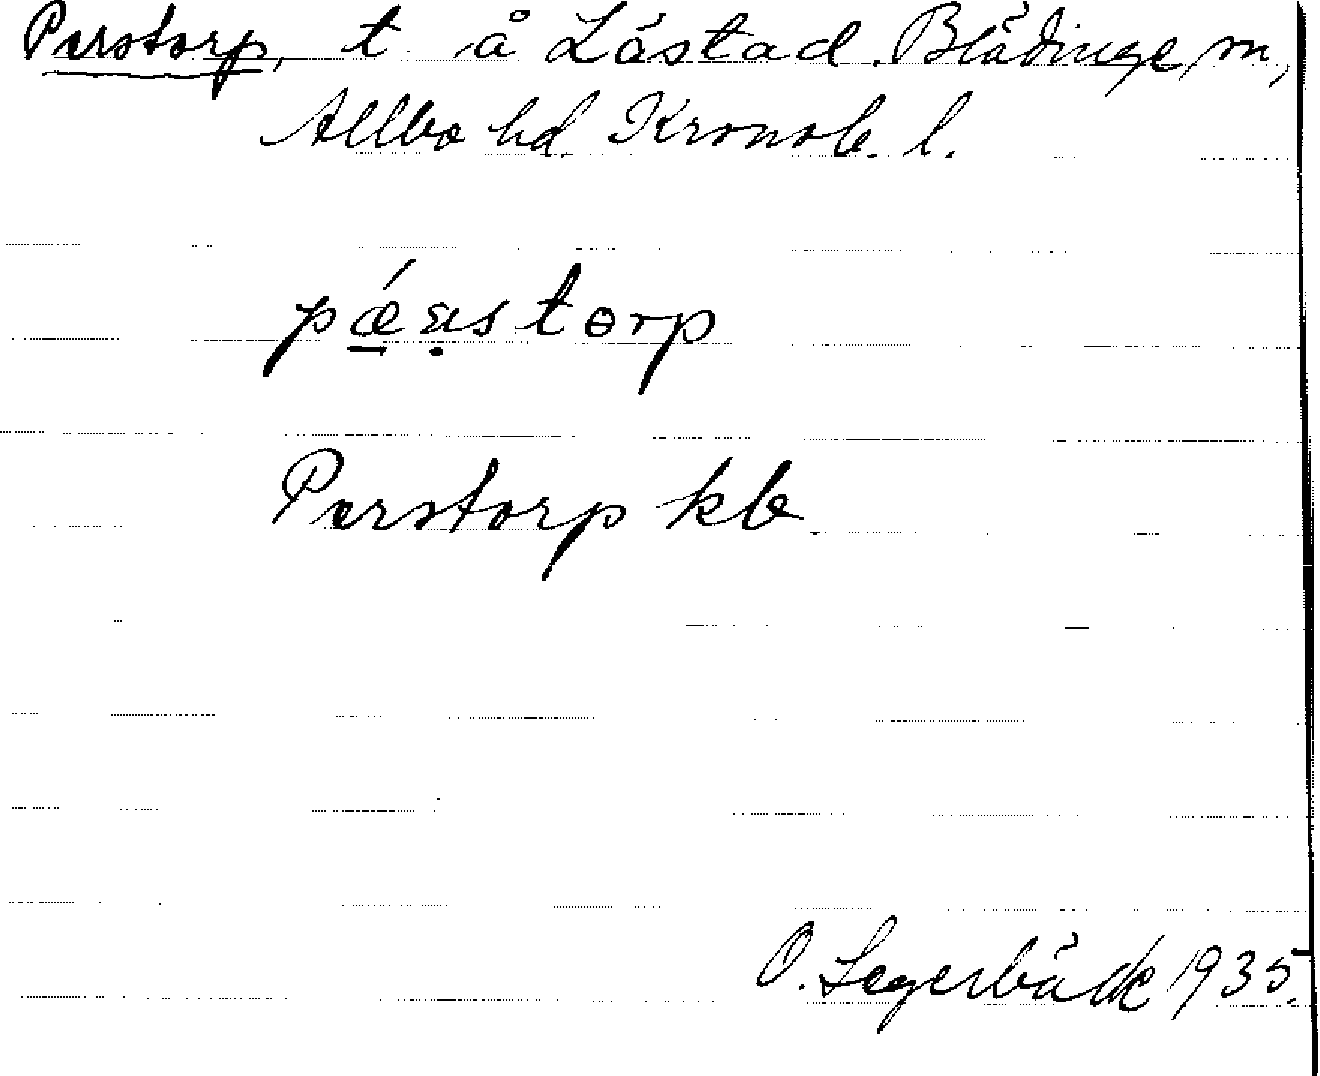 Perstorp, t å Låstad Blädinge sn,
Allbo hd. Kronob. l.
pǽ̱ạstɵrp
Perstorp kb
O. Segerbäck 1935.